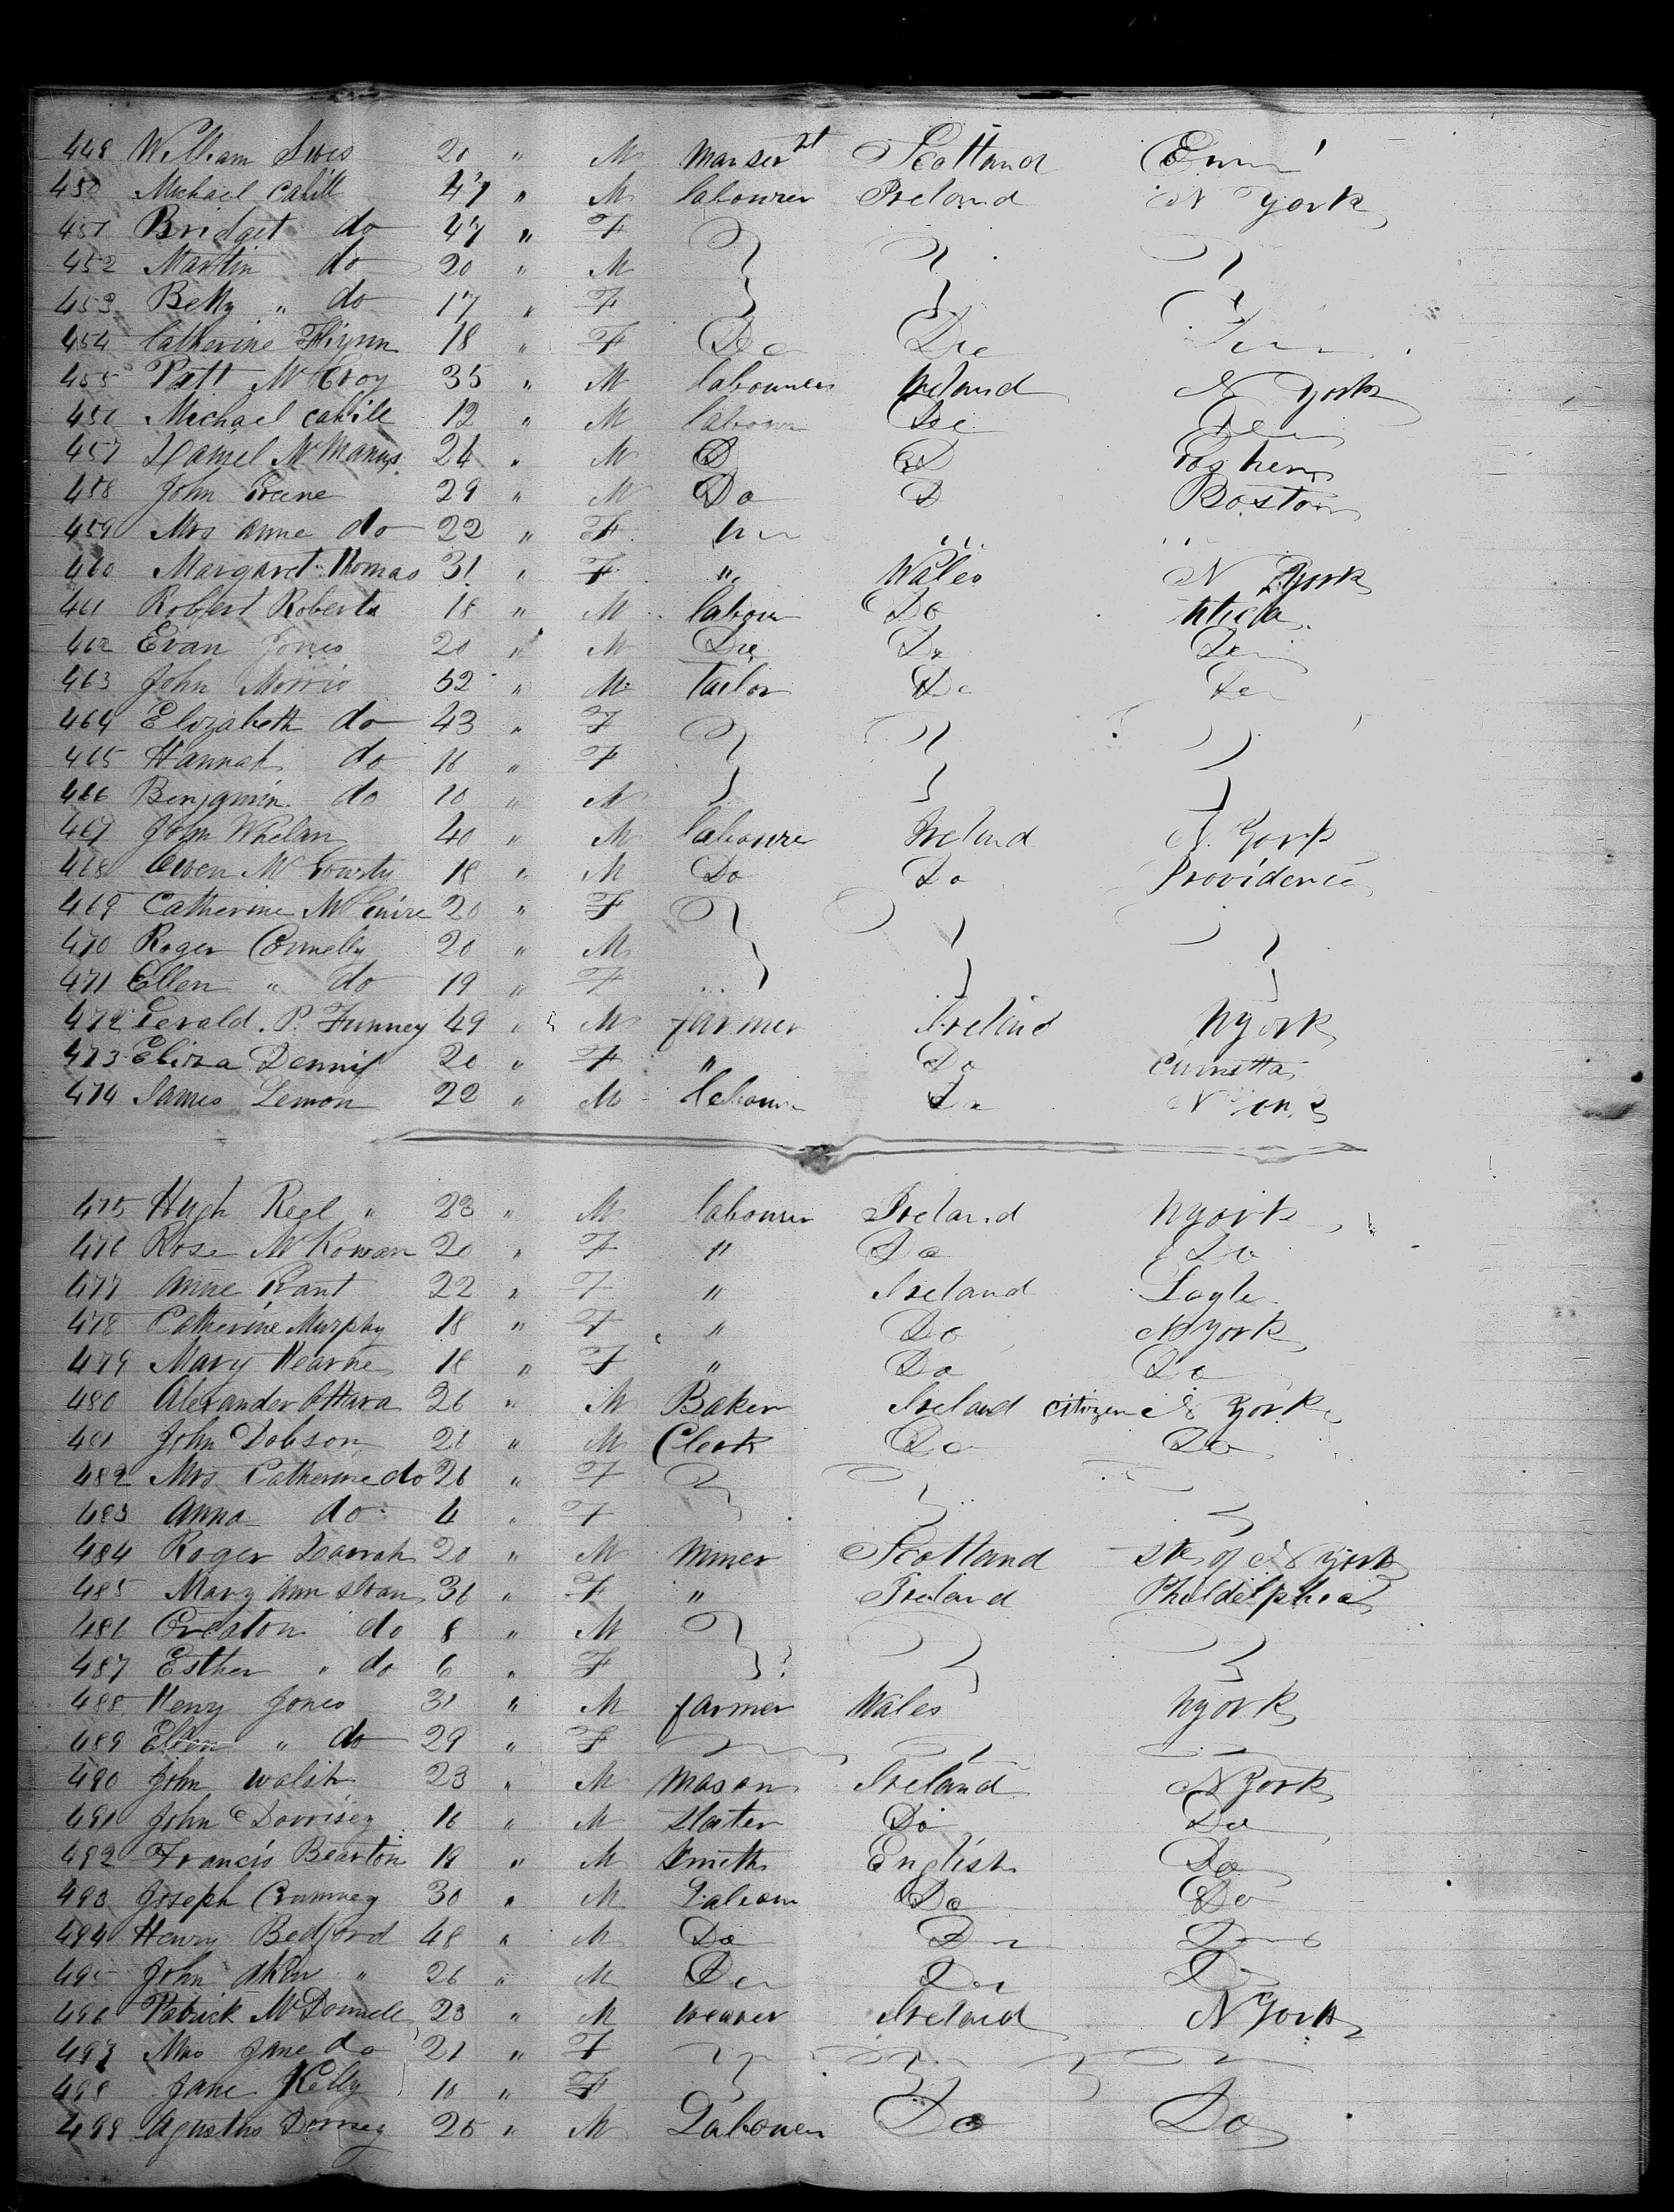 449 William 20 " M Scotland
450 Michael Cahill 47 " M labourer Ireland N York
451 Bridget do 47 " F
452 Martin do 20 " M
453 Betty " do 17 " F
454 Catherine Flynn 18 " F Do Do
455 Patt McEvoy 35 " M labourer Ireland N York
456 Michael Cahill 12 " M labour Do Do
457 Daniel McManus 24 " M D D
458 John 29 " M Do D Boston
459 Mrs Anne do 22 " F
460 Margaret Thomas 31 " F " Wales N York
461 Robert Roberts 18 " M labour Do Utica
462 Evan Jones 20 " M Do Do Do
463 John Morris 52 " M Tailor Do Do
464 Elizabeth do 43 " F
465 Hannah do 16 " F
466 Benjamin do 10 " M
467 John Whelan 40 " M labourer Ireland N. York
468 Owen 18 " M Do Do Providence
469 Catherine McGuire 20 " F
470 Roger Connelly 20 " M
471 Ellen " do 19 " F
472 Gerald. P. 49 " M farmer Ireland NYork
473 Eliza Dennis 20 " F " Do
474 James Lemon 22 " M labour Do
475 Hugh " 23 " M labourer Ireland NYork
476 Rose McKowan 20 " F " Do Do
477 Anne 22 " F " Ireland
478 Catherine Murphy 18 " F " Do N York
479 Mary Hearne 18 " F " Do Do
480 Alexander OHara 26 " M Baker Ireland citizen N York
481 John Dobson 28 " M Clerk Do Do
482 Mrs Catherine do 26 " F
483 Anna do 4 " F
484 Roger 20 " M Miner Scotland Ste of N York
485 Mary Ann Sloan 36 " F " Ireland Phildelphia
486 Creaton do 8 " M
487 Esther " do 6 " F
488 Henry Jones 31 " M farmer Wales NYork
489 Ellen " do 29 " F
490 John Walsh 23 " M Mason Ireland N York
491 John 16 " M Slater Do Do
492 Francis Bearton 18 " M Smith English Do
493 Joseph 30 " M Labour Do Do
494 Henry Bedford 48 " M Do Do Do
495 John " 26 " M Do Do Do
496 Patrick McDonnell 23 " M weaver Ireland N York
497 Mrs Jane do 21 " F
498 Jane Kelly 10 " F
499 25 " M Labourer Do Do